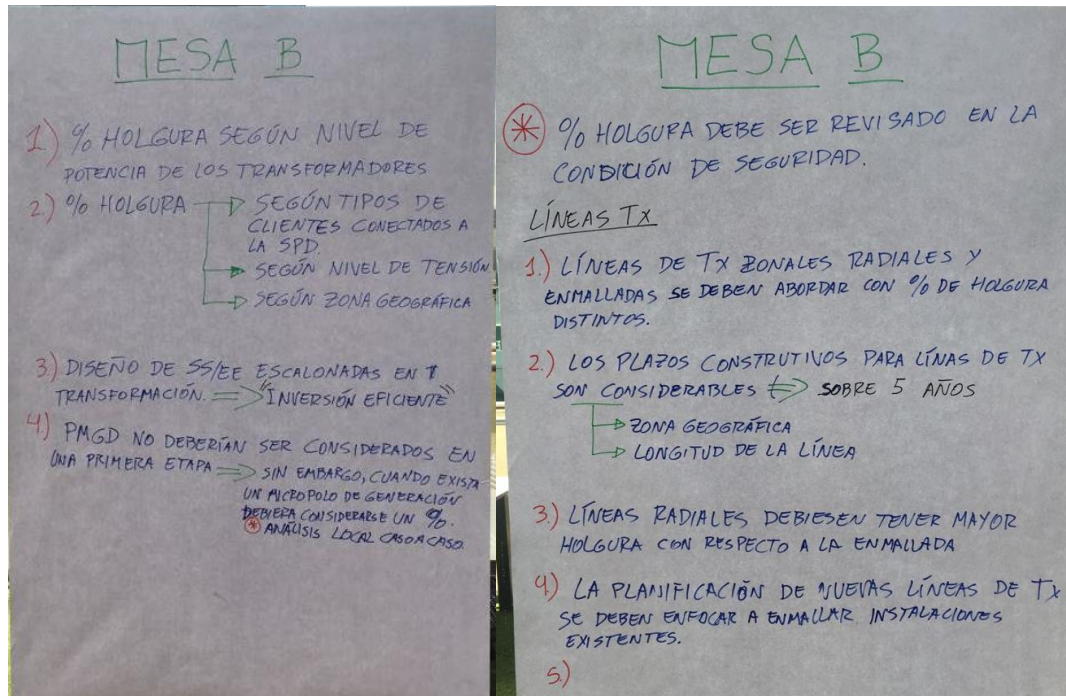 MESA B
1) % HOLGURA SEGÚN NIVEL DE
POTENCIA DE LOS TRANSFORMADORES
2) % HOLGURA → SEGÚN TIPOS DE
CLIENTES CONECTADOS A
LA SPD.
→ SEGÚN NIVEL DE TENSIÓN
→ SEGÚN ZONA GEOGRÁFICA
3) DISEÑO DE SS/EE ESCALONADAS EN
TRANSFORMACIÓN. ⇒ "INVERSIÓN EFICIENTE"
4) PMGD NO DEBERÍAN SER CONSIDERADOS EN
UNA PRIMERA ETAPA ⇒ SIN EMBARGO, CUANDO EXISTA
UN MICROPOLO DE GENERACIÓN
DEBIERA CONSIDERARSE UN %.
* ANÁLISIS LOCAL CASO A CASO.
MESA B
* % HOLGURA DEBE SER REVISADO EN LA
CONDICIÓN DE SEGURIDAD.
LÍNEAS Tx
1.) LÍNEAS DE Tx ZONALES RADIALES Y
ENMALLADAS SE DEBEN ABORDAR CON % DE HOLGURA
DISTINTOS.
2.) LOS PLAZOS CONSTRUTIVOS PARA LÍNAS DE TX
SON CONSIDERABLES ⇔ SOBRE 5 AÑOS
→ ZONA GEOGRÁFICA
→ LONGITUD DE LA LÍNEA
3.) LÍNEAS RADIALES DEBIESEN TENER MAYOR
HOLGURA CON RESPECTO A LA ENMALLADA
4) LA PLANIFICACIÓN DE NUEVAS LÍNEAS DE Tx
SE DEBEN ENFOCAR A ENMALLAR INSTALACIONES
EXISTENTES.
5.)